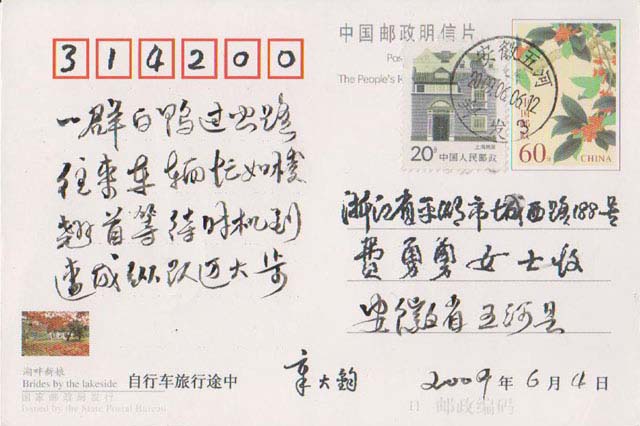 314200
中国邮政明信片
Pos
The People's R
安徽五河
2009.06.06.12
20分
上海民居
中国人民邮政
60分
中国邮政
CHINA
一群白鸭过公路
往来车辆忙如梭
翘首等待时机到
连成纵队迈大步
浙江省平湖市城西路188号
费勇勇女士收
安徽省五河县
湖畔新娘
Brides by the lakeside
国家邮政局发行
Issued by the State Postal Bureau
自行车旅行途中
章大钧
2009年6月4日
11
邮政编码